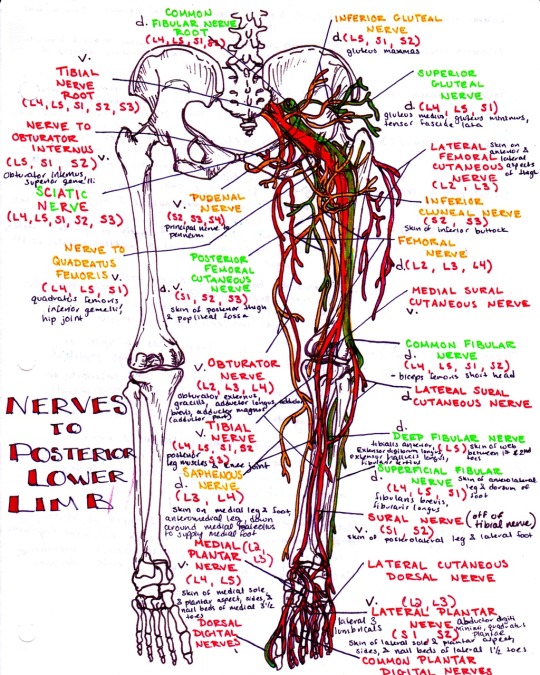 COMMON
d. FIBULAR NERVE
ROOT
(L4, L5, S1, S2)
V.
TIBIAL
NERVE
ROOT
(L4, L5, S1, S2, S3)
NERVE TO
OBTURATOR
INTERNUS
(L5, S1, S2) V.
Obturator internus,
superior gemelli
SCIATIC
NERVE
(L4, L5, S1, S2, S3)
NERVE TO
QUADRATUS
FEMORIS V.
(L4, L5, S1)
quadratus femoris,
inferior gemelli,
hip joint
V.
PUDENAL
NERVE
(S2, S3, S4)
principal nerve to
perineum
POSTERIOR
FEMORAL
CUTANEOUS
NERVE
d. V.
(S1, S2, S3)
skin of posterior thigh
& popliteal fossa
INFERIOR GLUTEAL
NERVE
d. (L5, S1, S2)
gluteus maximus
SUPERIOR
GLUTEAL
NERVE
d. (L4, L5, S1)
gluteus medius, gluteus minimus,
tensor fasciae lata
LATERAL
FEMORAL
CUTANEOUS
NERVE
(L2, L3)
skin on
anterior &
lateral
aspects
of thigh
INFERIOR
CLUNEAL NERVE
(S2, S3)
skin of inferior buttock
FEMORAL
NERVE
d. (L2, L3, L4)
MEDIAL SURAL
CUTANEOUS NERVE
V.
COMMON FIBULAR
NERVE
d.
(L4, L5, S1, S2)
- biceps femoris short head
LATERAL SURAL
d. CUTANEOUS NERVE
NERVES
TO
POSTERIOR
LOWER
LIMB
V. OBTURATOR
NERVE
(L2, L3, L4)
obturator externus,
gracilis, adductor longus, adductor
brevis, adductor magnus
(adductor part)
TIBIAL
V. NERVE
(L4, L5, S1, S2, S3)
posterior
leg muscles & knee joint
SAPHENOUS
d. NERVE
(L3, L4)
skin on medial leg & foot,
anteromedial leg, down
around medial malleolus
to supply medial foot
d.
DEEP FIBULAR NERVE
tibialis anterior, (L5) skin of web
Extensor digitorum longus, between 1st & 2nd
extensor hallucis longus, toes
fibularis tertius
SUPERFICIAL FIBULAR
d. NERVE
skin of anterolateral
leg & dorsum of
foot
(L4, L5, S1)
fibularis brevis,
fibularis longus
SURAL NERVE (off of
V. (S1, S2) tibial nerve)
skin of posterolateral leg & lateral foot
MEDIAL (L2,
PLANTAR L3)
V. NERVE
(L4, L5)
skin of medial sole,
& plantar aspect, sides, &
nail beds of medial 3½
toes
DORSAL
DIGITAL
NERVES
LATERAL CUTANEOUS
DORSAL NERVE
V. (L2, L3)
LATERAL PLANTAR
NERVE
(S1, S2)
lateral 3
lumbricals
Abductor digiti
minimi, quadratus
plantae
skin of lateral sole & plantar aspect,
sides, & nail beds of lateral 1½ toes
COMMON PLANTAR
DIGITAL NERVES